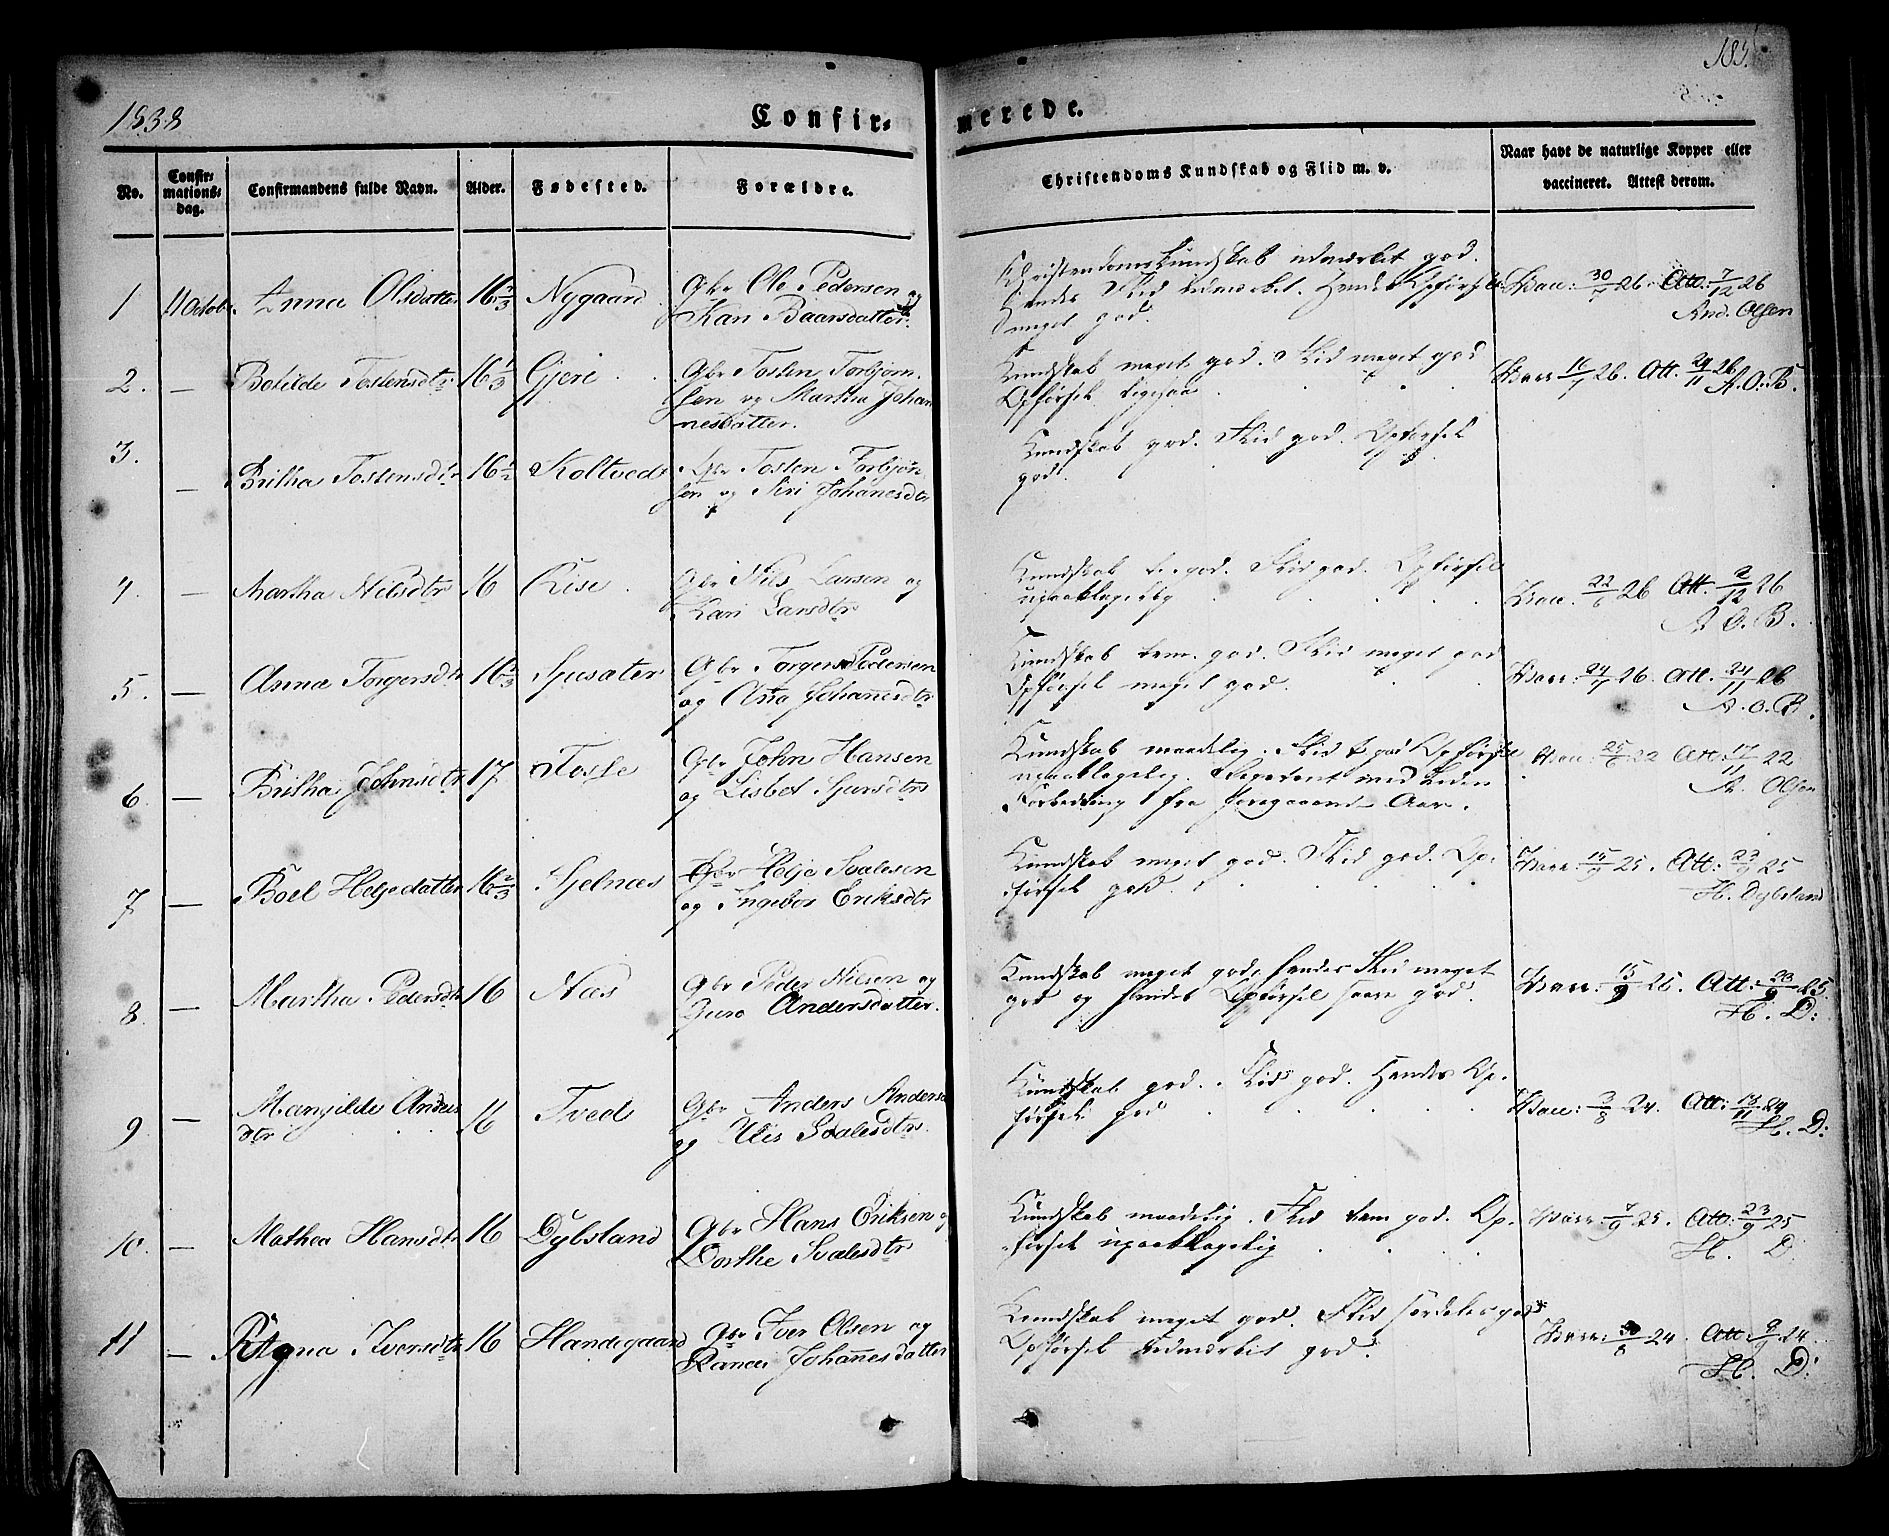 183.
1838
Confir=
merede.
No.
Confir-
mations-
dag.
Confirmandens fulde Navn.
Alder.
Fødested.
Forældre.
Christendoms Kundskab og Flid m. v.
Naar havt de naturlige Kopper eller
vaccineret. Attest derom.
1 11 Octob. Anna Olsdatter 16 2/3 Nygaard Gbr Ole Pedersen og
Kari Baarsdatter.
Christendomskundskab udmærket god.
Hendes Flid udmærket. Hendes Opførsel
meget god.
Vacc: 30/7 26. Att: 7/12 26
And. Olsen
2. — Botilde Tostensdtr 16 1/3 Gjere Gbr Tosten Torbjørn
sen og Martha Johan
nesdatter.
Kundskab meget god. Flid meget god
Opførsel ligesaa
Vacc 16/7 26. Att. 29/11 26
A. O. B.
3. — Britha Tostensdtr 16 1/2 Koltved Gbr Tosten Torbjøn
sen og Siri Johanesdtr
Kundskab god. Flid god. Opførsel
god.
4. — Martha Nilsdtr 16 Rise Gbr Nils Larsen og
Kari Larsdtr
Kundskab god. Flid god. Opførsel
upaaklagelig
Vacc. 22/6 26 Att. 2/12 26
A O. B.
5. — Anna Torgersdtr 16 2/3 Gbr Torgers Pedersen
og Johannesdtr
Kundskab tem. god. Flid meget god
Opførsel meget god.
Vacc: 24/7 26. Att. 24/11 26
A. O. B.
6. — Britha Johnsdtr 17 Tosse Gbr John Hansen
og Lisbet Sjursdtr
Kundskab maadelig. Flid t. god Opførsel
upaaklagelig.
Forbedring fra foregaaende Aar.
Vacc: 25/6 22 Att: 17/11 22
A. Olsen
7 — Boel Helgedatter 16 2/3 Hjelnæs Gbr Helje Svalesen
og Ingebor Eriksdtr
Kundskab meget god. Flid god. Op-
førsel god.
Vacc: 15/9 25. Att: 23/9 25
H. Dybsland
8. — Martha Pedersdtr 16 Næs Gbr Peder Nilsen og
Guro Andersdatter.
Kundskab meget god, hendes Flid meget
god og hendes Opførsel god.
Vacc: 15/9 25. Att: 23/9 25.
H. D:
9 — Mangilde Anders
dtr 16 Tved Gbr Anders Anders
og Svalesdtr.
Kundskab god. Flid god. Hendes Op-
førsel god
Vacc: 3/8 24. Att: 13/11 24
H. D:
10. — Mathea Hansdtr 16 Dybsland Gbr Hans Eriksen og
Dorthe Svalesdtr
Kundskab maadelig. Flid tem god. Op-
førsel upaaklagelig
Vacc: 7/9 25. Att: 23/9 25
H. D
11 — Ragna Iversdtr 16 Handegaard Gbr Iver Olsen og
Johannesdatter
Kundskab meget god. Flid særdeles god
Opførsel udmærket god.
Vacc: 30/8 24. Att: 9/9 24.
H. D: